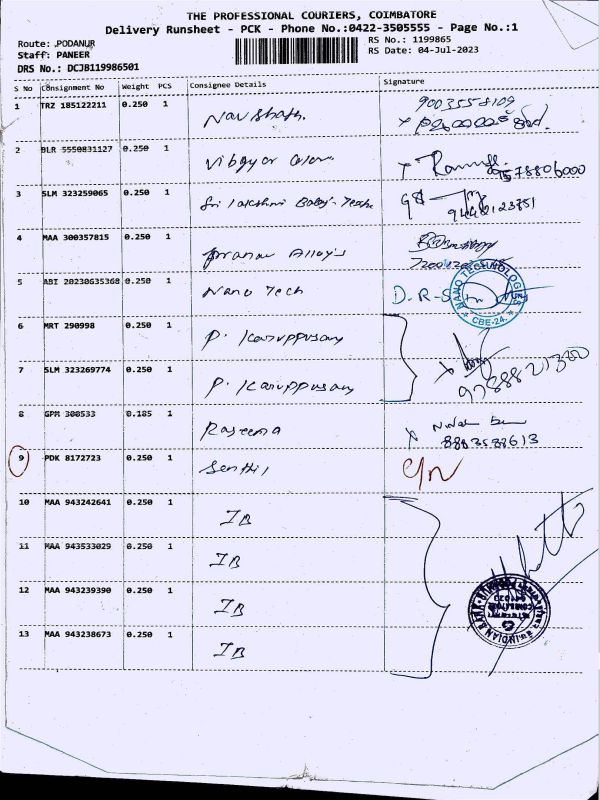 THE PROFESSIONAL COURIERS, COIMBATORE
Delivery Runsheet - PCK - Phone No.:0422-3505555 - Page No.:1
Route: .PODANUR
Staff: PANEER
DRS No.: DCJB119986501
RS No.: 1199865
RS Date: 04-Jul-2023
S No Consignment No Weight PCS Consignee Details Signature
1 TRZ 185122211 0.250 1 9003558109
2 BLR 5550831127 0.250 1 Vibgyor
3 SLM 323259065 0.250 1 Sri Lakshmi Baby-Tech
4 MAA 300357815 0.250 1 Pranav Alloys
5 ABI 20230635368 0.250 1 Nano Tech D.R-S
NANO TECHNOLOGIES
* CBE-24. *
6 MRT 290998 0.250 1 P. Karuppusamy
7 SLM 323269774 0.250 1 P. Karuppusamy
8 GPR 300533 0.185 1 Raseema
9 PDK 8172723 0.250 1 Senthil C/N
10 MAA 943242641 0.250 1 IB
11 MAA 943533029 0.250 1 IB
12 MAA 943239390 0.250 1 IB
13 MAA 943238673 0.250 1 IB
INDIAN BANK